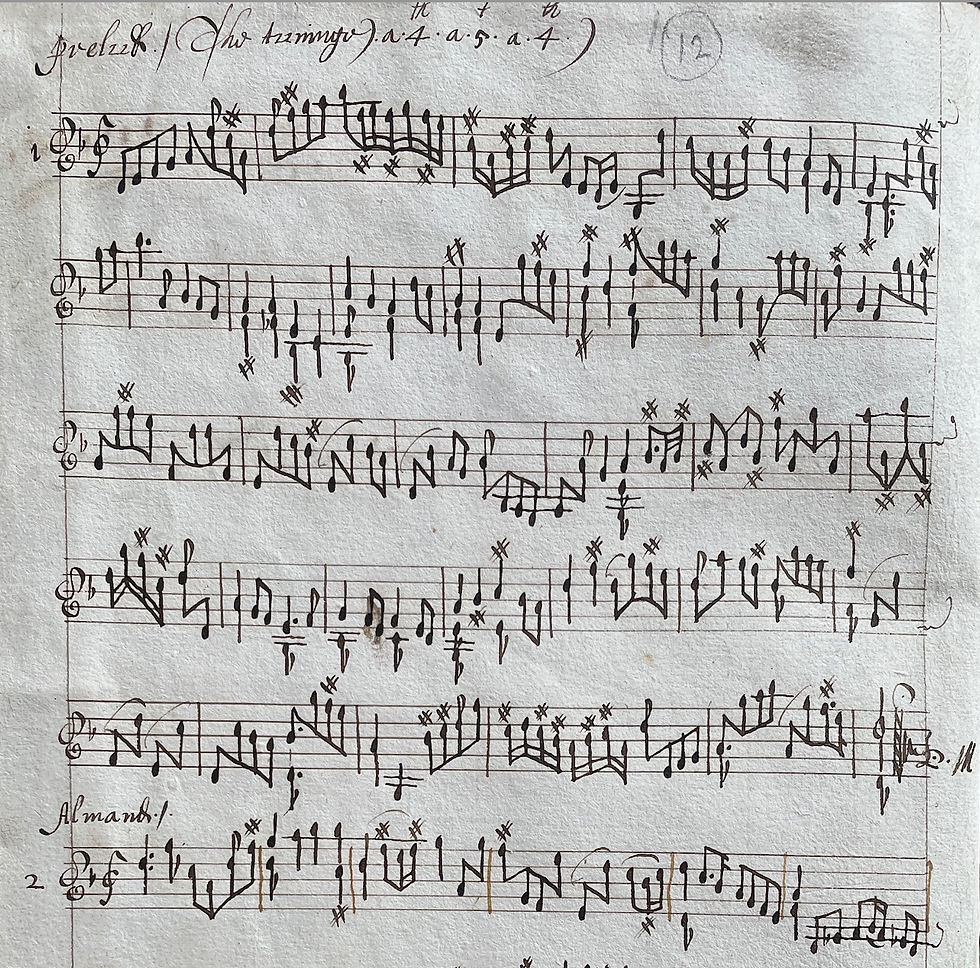 th t th
prelud. / (The tuninge). a. 4. a. 5. a. 4. )
12
1
Almand. /.
2